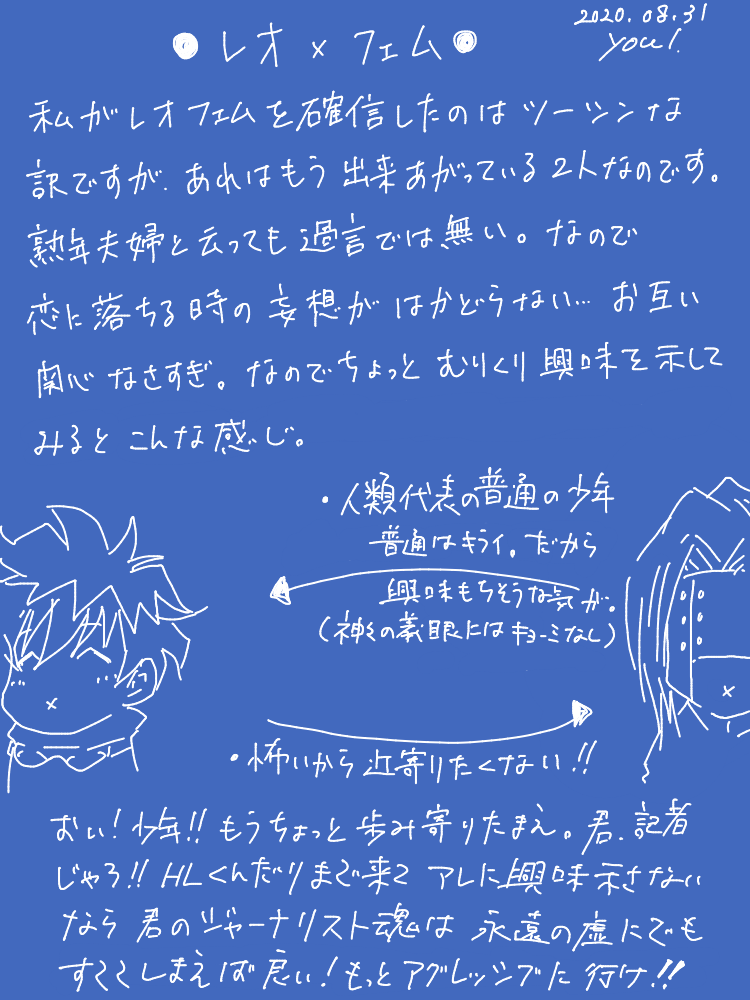 2020.08.31
you!
レオ×フェム
私がレオフェムを確信したのはツーツンな
訳ですが、あれはもう出来あがっている2人なのです。
熟年夫婦と云っても過言では無い。なので
恋に落ちる時の妄想がはかどらない… お互い
関心なさすぎ。なのでちょっとむりくり興味を示して
みるとこんな感じ。
・人類代表の普通の少年
普通はキライ。だから
興味もちそうな気が。
(神々の義眼にはキョーミなし)
・怖いから近寄りたくない!!
おい!少年!!もうちょっと歩み寄りたまえ。君、記者
じゃろ!!HLくんだりまで来て アレに興味示さない
なら 君のジャーナリスト魂は 永遠の虚にでも
すててしまえば良い!もっとアグレッシブに行け!!